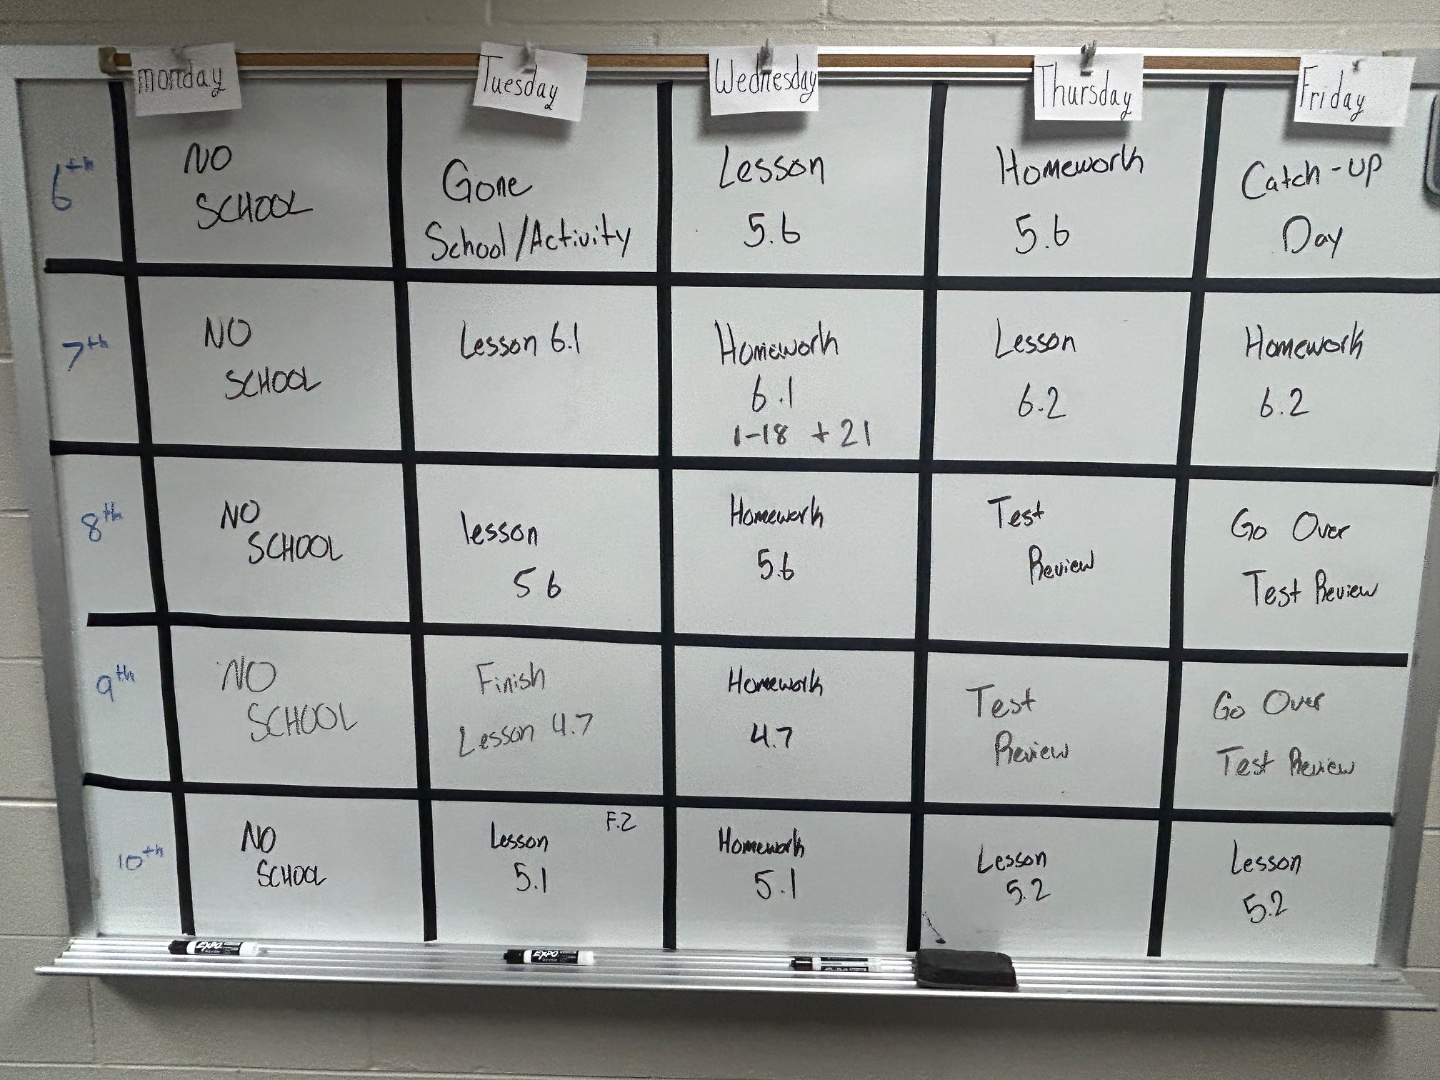 monday
Tuesday
Wednesday
Thursday
Friday
6th
NO
SCHOOL
Gone
School/Activity
Lesson
5.6
Homework
5.6
Catch-up
Day
7th
NO
SCHOOL
Lesson 6.1
Homework
6.1
1-18 + 21
Lesson
6.2
Homework
6.2
8th
NO
SCHOOL
lesson
5 6
Homework
5.6
Test
Review
Go Over
Test Review
9th
NO
SCHOOL
Finish
Lesson 4.7
Homework
4.7
Test
Review
Go Over
Test Review
10th
NO
SCHOOL
F.2
Lesson
5.1
Homework
5.1
Lesson
5.2
Lesson
5.2
EXPO
EXPO